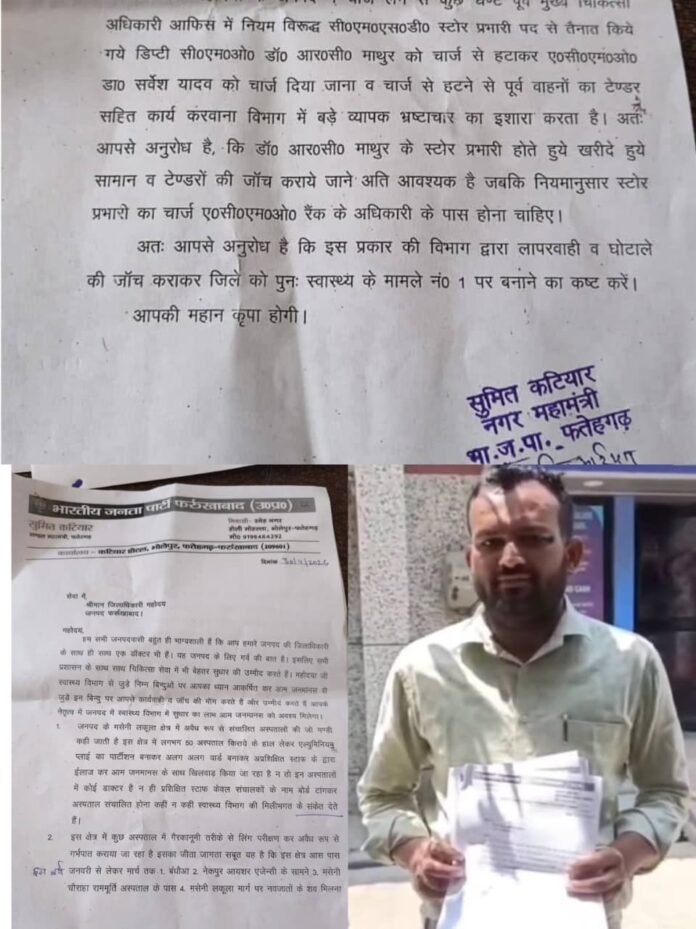 अधिकारी आफिस में नियम विरूद्ध सी०एम०एस०डी० स्टोर प्रभारी पद से तैनात किये
गये डिप्टी सी०एम०ओ० डॉ० आर०सी० माथुर को चार्ज से हटाकर ए०सी०एम०ओ०
डा० सर्वेश यादव को चार्ज दिया जाना व चार्ज से हटने से पूर्व वाहनों का टेण्डर
सहित कार्य करवाना विभाग में बड़े व्यापक भ्रष्टाचार का इशारा करता है। अतः
आपसे अनुरोध है, कि डॉ० आर०सी० माथुर के स्टोर प्रभारी होते हुये खरीदे हुये
सामान व टेण्डरों की जॉच कराये जाने अति आवश्यक है जबकि नियमानुसार स्टोर
प्रभारी का चार्ज ए०सी०एम०ओ० रैंक के अधिकारी के पास होना चाहिए।
अतः आपसे अनुरोध है कि इस प्रकार की विभाग द्वारा लापरवाही व घोटाले
की जॉच कराकर जिले को पुनः स्वास्थ्य के मामले नं० 1 पर बनाने का कष्ट करें।
आपकी महान कृपा होगी।
सुमित कटियार
नगर महामंत्री
भा.ज.पा. फतेहगढ़
भारतीय जनता पार्टी फर्रुखाबाद (उ०प्र०)
सुमित कटियार
निवासी-
भोलेपुर-फतेहगढ़
मो० 9198484292
कार्यालय - कटियार होटल, भोलेपुर, फतेहगढ़-फर्रुखाबाद (209601)
दिनांक
सेवा में,
श्रीमान जिलाधिकारी महोदय
जनपद फर्रुखाबाद।
महोदय,
हम सभी जनपदवासी बहुत ही भाग्यशाली हैं कि आप हमारे जनपद की जिलाधिकारी
के साथ ही साथ एक डॉक्टर भी हैं। यह जनपद के लिए गर्व की बात है। इसलिए सभी
प्रशासन के साथ साथ चिकित्सा सेवा में भी बेहतर सुधार की उम्मीद करते हैं। महोदया जी
स्वास्थ्य विभाग से जुड़े निम्न बिन्दुओं पर आपका ध्यान आकर्षित कर आम जनमानस से
जुड़े इन बिन्दु पर आपसे कार्यवाही व जॉच की मॉग करते हैं और उम्मीद करते हैं आपके
नेतृत्व में जनपद में स्वास्थ्य विभाग में सुधार का लाभ आम जनमानस को अवश्य मिलेगा।
1. जनपद के मसेनी लकूला क्षेत्र में अवैध रूप से संचालित अस्पतालों की जो मण्डी
कही जाती है इस क्षेत्र में लगभग 50 अस्पताल किराये के हाल लेकर एल्युमिनियम
प्लाई का पार्टीशन बनाकर अलग अलग वार्ड बनाकर अप्रशिक्षित स्टाफ के द्वारा
ईलाज कर आम जनमानस के साथ खिलवाड़ किया जा रहा है न तो इन अस्पतालों
में कोई डाक्टर है न ही प्रशिक्षित स्टाफ केवल संचालकों के नाम बोर्ड टांगकर
अस्पताल संचालित होना कहीं न कहीं स्वास्थ्य विभाग की मिलीभगत के संकेत देते
हैं।
2. इस क्षेत्र में कुछ अस्पताल में गैरकानूनी तरीके से लिंग परीक्षण कर अवैध रूप से
गर्भपात कराया जा रहा है इसका जीता जागता सबूत यह है कि इस क्षेत्र आस पास
इस वर्ष जनवरी से लेकर मार्च तक 1. बंधौआ 2. नेकपुर आयशर एजेन्सी के सामने 3. मसेनी
चौराहा राममूर्ति अस्पताल के पास 4. मसेनी लकूला मार्ग पर नवजातों के शव मिलना